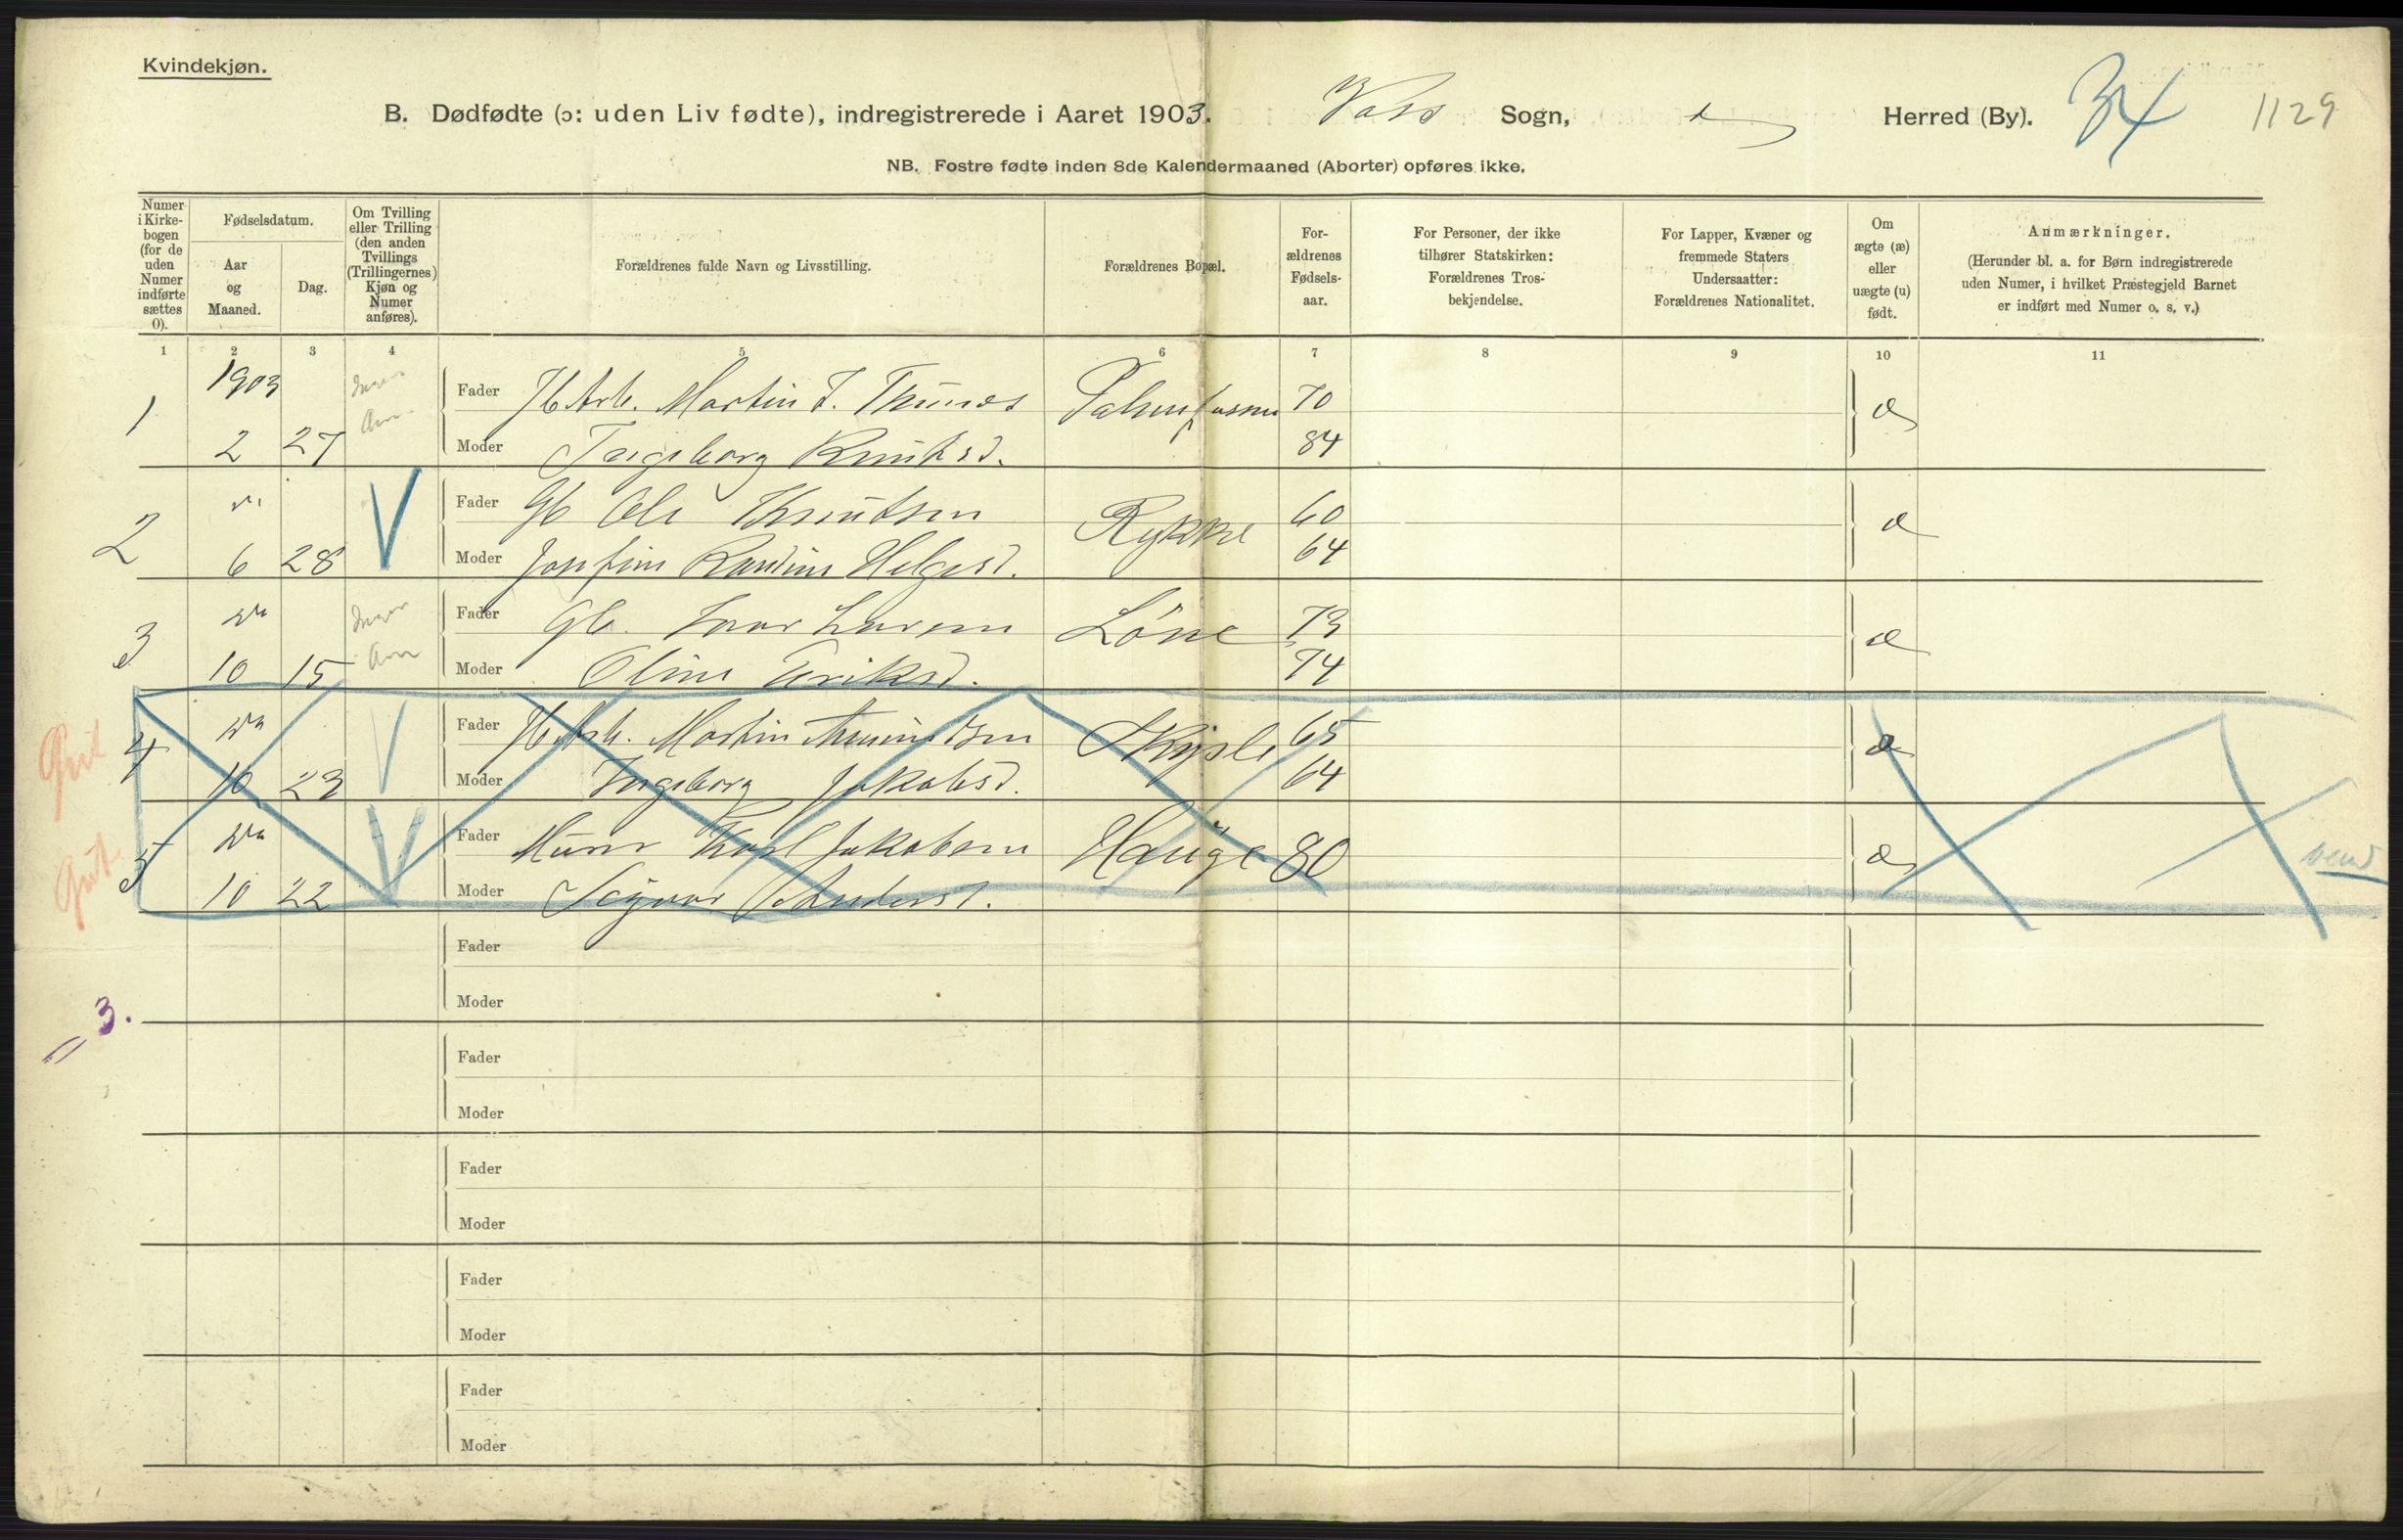 Kvindekjøn.
B. Dødfødte (ɔ: uden Liv fødte), indregistrerede i Aaret 1903. Voss Sogn, Herred (By). 34 1129
NB. Fostre fødte inden 8de Kalendermaaned (Aborter) opføres ikke.
Numer i Kirkebogen (for de uden Numer indførte sættes 0).
Fødselsdatum.
Aar og Maaned.
Dag.
Om Tvilling eller Trilling (den anden Tvillings (Trillingernes) Kjøn og Numer anføres).
Forældrenes fulde Navn og Livsstilling.
Forældrenes Bopæl.
Forældrenes Fødselsaar.
For Personer, der ikke tilhører Statskirken: Forældrenes Trosbekjendelse.
For Lapper, Kvæner og fremmede Staters Undersaatter: Forældrenes Nationalitet.
Om ægte (æ) eller uægte (u) født.
Anmærkninger.
(Herunder bl. a. for Børn indregistrerede uden Numer, i hvilket Præstegjeld Barnet er indført med Numer o. s. v.)
1 2 3 4 5 6 7 8 9 10 11
1903 Ingen Fader Martin T. 70 æ
1 2 27 Anm. Moder Ingeborg Knutsd. 84
Fader Gb Ole Knutsen Rykke 60 æ
2 6 28 Moder Josefine Helgesd. 64
Ingen Fader Gb. Ivar Larsen Löne 73 æ
3 10 15 Anm Moder Oline Eriksd. 74
Gut 4 Fader Martin Amundsen 65 æ
10 23 Moder Ingeborg Jakobsd. 64
Gut 5 Fader Murer Karl Jakobsen Hauge 80 æ vend
10 22 Moder Andersd.
Fader
Moder
= 3.
Fader
Moder
Fader
Moder
Fader
Moder
Fader
Moder